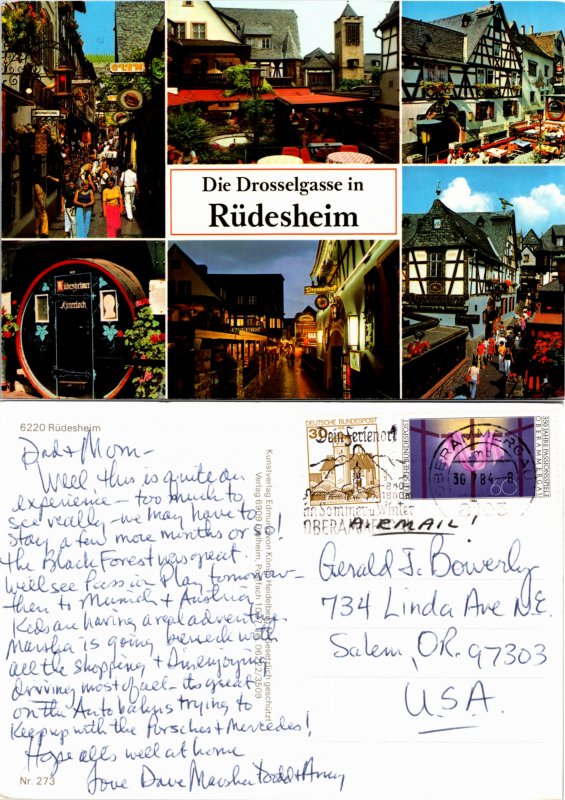 Die Drosselgasse in
Rüdesheim
Rüdesheimer
6220 Rüdesheim
Dad & Mom -
Well this is quite an
experience - too much to
see really - we may have to
stay a few more months or so!
the Black Forest was great.
We'll see Passion Play tomorrow -
then to Munich & Austria
Kids are having a real adventure
Marsha is going berserk with
all the shopping + I'm enjoying
driving most of all - its great
on the Autobahns trying to
keep up with the Porsches + Mercedes!
Hope alls well at home
Love Dave Marsha Todd + Amy
Nr. 273
Kunstverlag Edmund von König, Heidelberg
Verlag 6909 Dielheim, Postfach
gesetzlich geschützt
DEUTSCHE BUNDESPOST
30
Dein Ferienort
im Sommer u. Winter
DEUTSCHE BUNDESPOST
350 JAHRE PASSIONSSPIELE
OBERAMMERGAU
60
OBERAMMERGAU
mb
30.7.84-8
8103
AIRMAIL!
Gerald J. Bowerly
734 Linda Ave N.E.
Salem, OR. 97303
U.S.A.